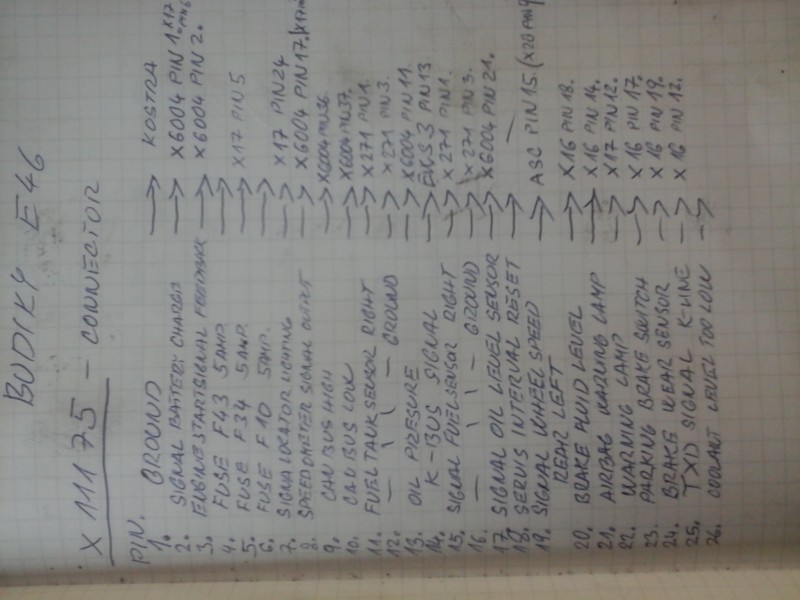 BUDIKY E46
X 11175 - CONNECTOR
PIN.
1. GROUND → KOSTRA
2. SIGNAL BATTERY CHARGE → X6004 PIN 1. X17
3. ENGINE START SIGNAL FEEDBACK → X6004 PIN 2.
4. FUSE F43 5AMP. →
5. FUSE F34 5AMP. → X17 PIN 5
6. FUSE F10 5AMP. →
7. SIGNAL LOCATOR LIGHTING → X17 PIN 24
8. SPEEDOMETER SIGNAL OUTPUT → X6004 PIN 17.
9. CAN BUS HIGH → X6004 PIN 36
10. CAN BUS LOW → X6004 PIN 37.
11. FUEL TANK SENSOR RIGHT → X271 PIN 1.
12. — 11 — GROUND → X271 PIN 3.
13. OIL PRESSURE → X6004 PIN 11.
14. K-BUS SIGNAL → EWS 3 PIN 13
15. SIGNAL FUEL SENSOR RIGHT → X271 PIN 1.
16. — 11 — GROUND → X271 PIN 3.
17. SIGNAL OIL LEVEL SENSOR → X6004 PIN 21.
18. SERVIS INTERVAL RESET → —
19. SIGNAL WHEEL SPEED → ASC PIN 15. (X20
REAR LEFT
20. BRAKE FLUID LEVEL → X16 PIN 18.
21. AIRBAG WARNING LAMP → X16 PIN 14.
22. WARNING LAMP → X17 PIN 12.
23. PARKING BRAKE SWITCH → X16 PIN 17.
24. BRAKE WEAR SENSOR → X16 PIN 19.
25. TXD SIGNAL K-LINE → X16 PIN 12.
26. COOLANT LEVEL TOO LOW →